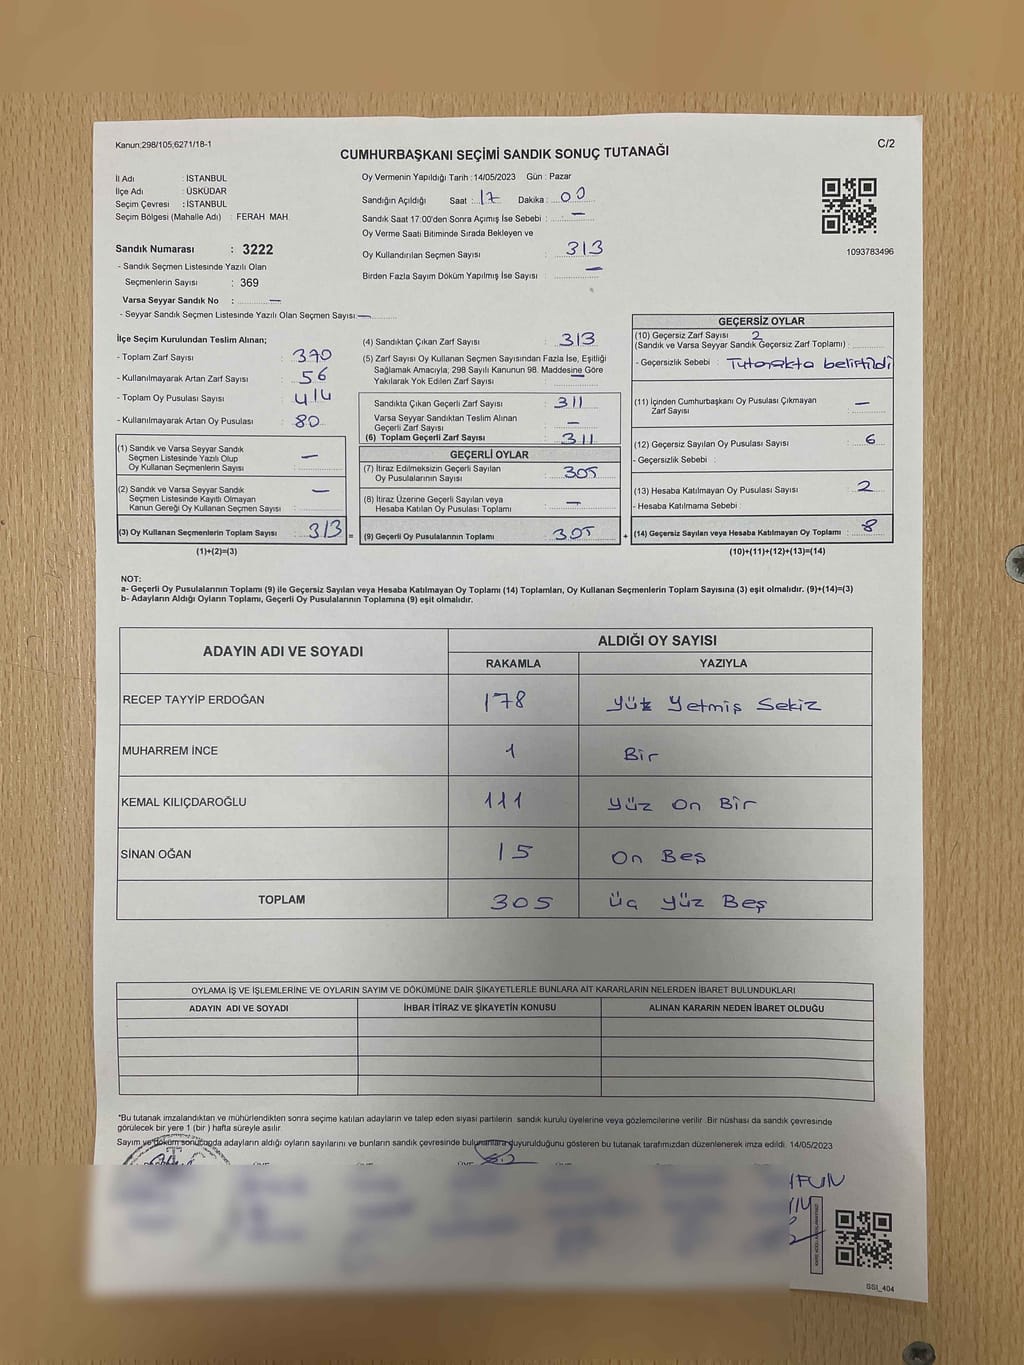 Kanun;298/105;6271/18-1
C/2
CUMHURBAŞKANI SEÇİMİ SANDIK SONUÇ TUTANAĞI
İl Adı : İSTANBUL
İlçe Adı : ÜSKÜDAR
Seçim Çevresi : İSTANBUL
Seçim Bölgesi (Mahalle Adı) : FERAH MAH.
Sandık Numarası : 3222
- Sandık Seçmen Listesinde Yazılı Olan
Seçmenlerin Sayısı : 369
Varsa Seyyar Sandık No : —
- Seyyar Sandık Seçmen Listesinde Yazılı Olan Seçmen Sayısı: —
Oy Vermenin Yapıldığı Tarih : 14/05/2023 Gün : Pazar
Sandığın Açıldığı Saat : 17 Dakika : 00
Sandık Saat 17:00'den Sonra Açımış İse Sebebi : —
Oy Verme Saati Bitiminde Sırada Bekleyen ve
Oy Kullandırılan Seçmen Sayısı : 313
Birden Fazla Sayım Döküm Yapılmış İse Sayısı : —
1093783496
İlçe Seçim Kurulundan Teslim Alınan;
- Toplam Zarf Sayısı : 370
- Kullanılmayarak Artan Zarf Sayısı : 56
- Toplam Oy Pusulası Sayısı : 414
- Kullanılmayarak Artan Oy Pusulası : 80
(1) Sandık ve Varsa Seyyar Sandık
Seçmen Listesinde Yazılı Olup
Oy Kullanan Seçmenlerin Sayısı : —
(2) Sandık ve Varsa Seyyar Sandık
Seçmen Listesinde Kayıtlı Olmayan
Kanun Gereği Oy Kullanan Seçmen Sayısı : —
(3) Oy Kullanan Seçmenlerin Toplam Sayısı : 313
(1)+(2)=(3)
(4) Sandıktan Çıkan Zarf Sayısı : 313
(5) Zarf Sayısı Oy Kullanan Seçmen Sayısından Fazla İse, Eşitliği
Sağlamak Amacıyla; 298 Sayılı Kanunun 98. Maddesine Göre
Yakılarak Yok Edilen Zarf Sayısı : —
Sandıkta Çıkan Geçerli Zarf Sayısı : 311
Varsa Seyyar Sandıktan Teslim Alınan
Geçerli Zarf Sayısı : —
(6) Toplam Geçerli Zarf Sayısı : 311
GEÇERLİ OYLAR
(7) İtiraz Edilmeksizin Geçerli Sayılan
Oy Pusulalarının Sayısı : 305
(8) İtiraz Üzerine Geçerli Sayılan veya
Hesaba Katılan Oy Pusulası Toplamı : —
= (9) Geçerli Oy Pusulalarının Toplamı : 305 +
GEÇERSİZ OYLAR
(10) Geçersiz Zarf Sayısı 2
(Sandık ve Varsa Seyyar Sandık Geçersiz Zarf Toplamı) :
- Geçersizlik Sebebi : Tutanakta belirtildi
(11) İçinden Cumhurbaşkanı Oy Pusulası Çıkmayan
Zarf Sayısı : —
(12) Geçersiz Sayılan Oy Pusulası Sayısı : 6
- Geçersizlik Sebebi :
(13) Hesaba Katılmayan Oy Pusulası Sayısı : 2
- Hesaba Katılmama Sebebi :
(14) Geçersiz Sayılan veya Hesaba Katılmayan Oy Toplamı : 8
(10)+(11)+(12)+(13)=(14)
NOT:
a- Geçerli Oy Pusulalarının Toplamı (9) ile Geçersiz Sayılan veya Hesaba Katılmayan Oy Toplamı (14) Toplamları, Oy Kullanan Seçmenlerin Toplam Sayısına (3) eşit olmalıdır. (9)+(14)=(3)
b- Adayların Aldığı Oyların Toplamı, Geçerli Oy Pusulalarının Toplamına (9) eşit olmalıdır.
ADAYIN ADI VE SOYADI
ALDIĞI OY SAYISI
RAKAMLA YAZIYLA
RECEP TAYYİP ERDOĞAN 178 Yüz Yetmiş Sekiz
MUHARREM İNCE 1 Bir
KEMAL KILIÇDAROĞLU 111 Yüz On Bir
SİNAN OĞAN 15 On Beş
TOPLAM 305 Üç Yüz Beş
OYLAMA İŞ VE İŞLEMLERİNE VE OYLARIN SAYIM VE DÖKÜMÜNE DAİR ŞİKAYETLERLE BUNLARA AİT KARARLARIN NELERDEN İBARET BULUNDUKLARI
ADAYIN ADI VE SOYADI İHBAR İTİRAZ VE ŞİKAYETİN KONUSU ALINAN KARARIN NEDEN İBARET OLDUĞU
*Bu tutanak imzalandıktan ve mühürlendikten sonra seçime katılan adayların ve talep eden siyasi partilerin sandık kurulu üyelerine veya gözlemcilerine verilir. Bir nüshası da sandık çevresinde
görülecek bir yere 1 (bir ) hafta süreyle asılır.
Sayım ve döküm sonucunda adayların aldığı oyların sayılarını ve bunların sandık çevresinde bulunanlara duyurulduğunu gösteren bu tutanak tarafımızdan düzenlenerek imza edildi. 14/05/2023
SSI_404